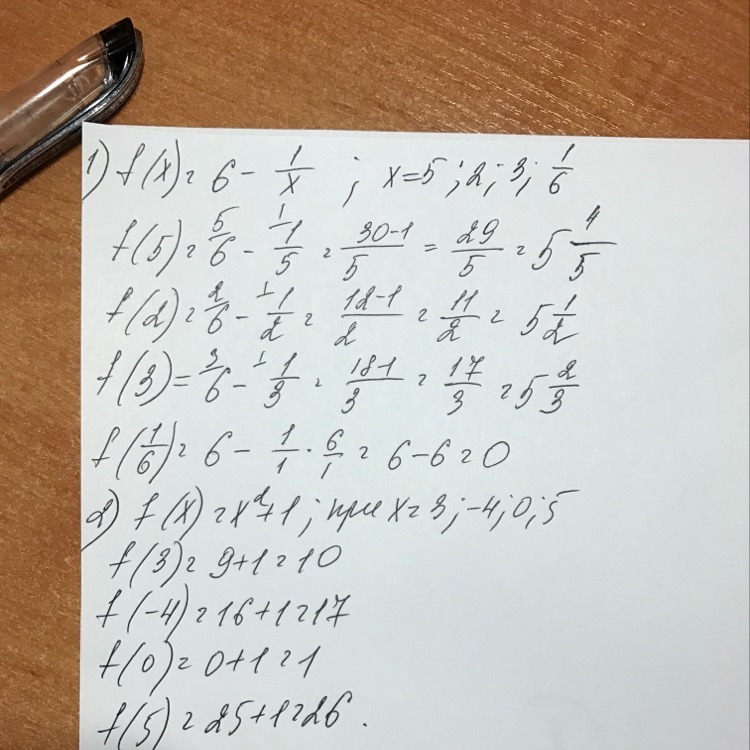 1) f(x) = 6 - 1/x ; x=5; 2; 3; 1/6
f(5) = 5/6 - 1/1/5 = 30-1/5 = 29/5 = 5 4/5
f(2) = 2/6 - 1/1/2 = 12-1/2 = 11/2 = 5 1/2
f(3) = 3/6 - 1/1/3 = 18-1/3 = 17/3 = 5 2/3
f(1/6) = 6 - 1/1 · 6/1 = 6-6=0
2) f(x) = x²+1; при x=3; -4; 0; 5
f(3) = 9+1=10
f(-4) = 16+1=17
f(0) = 0+1=1
f(5) = 25+1=26.